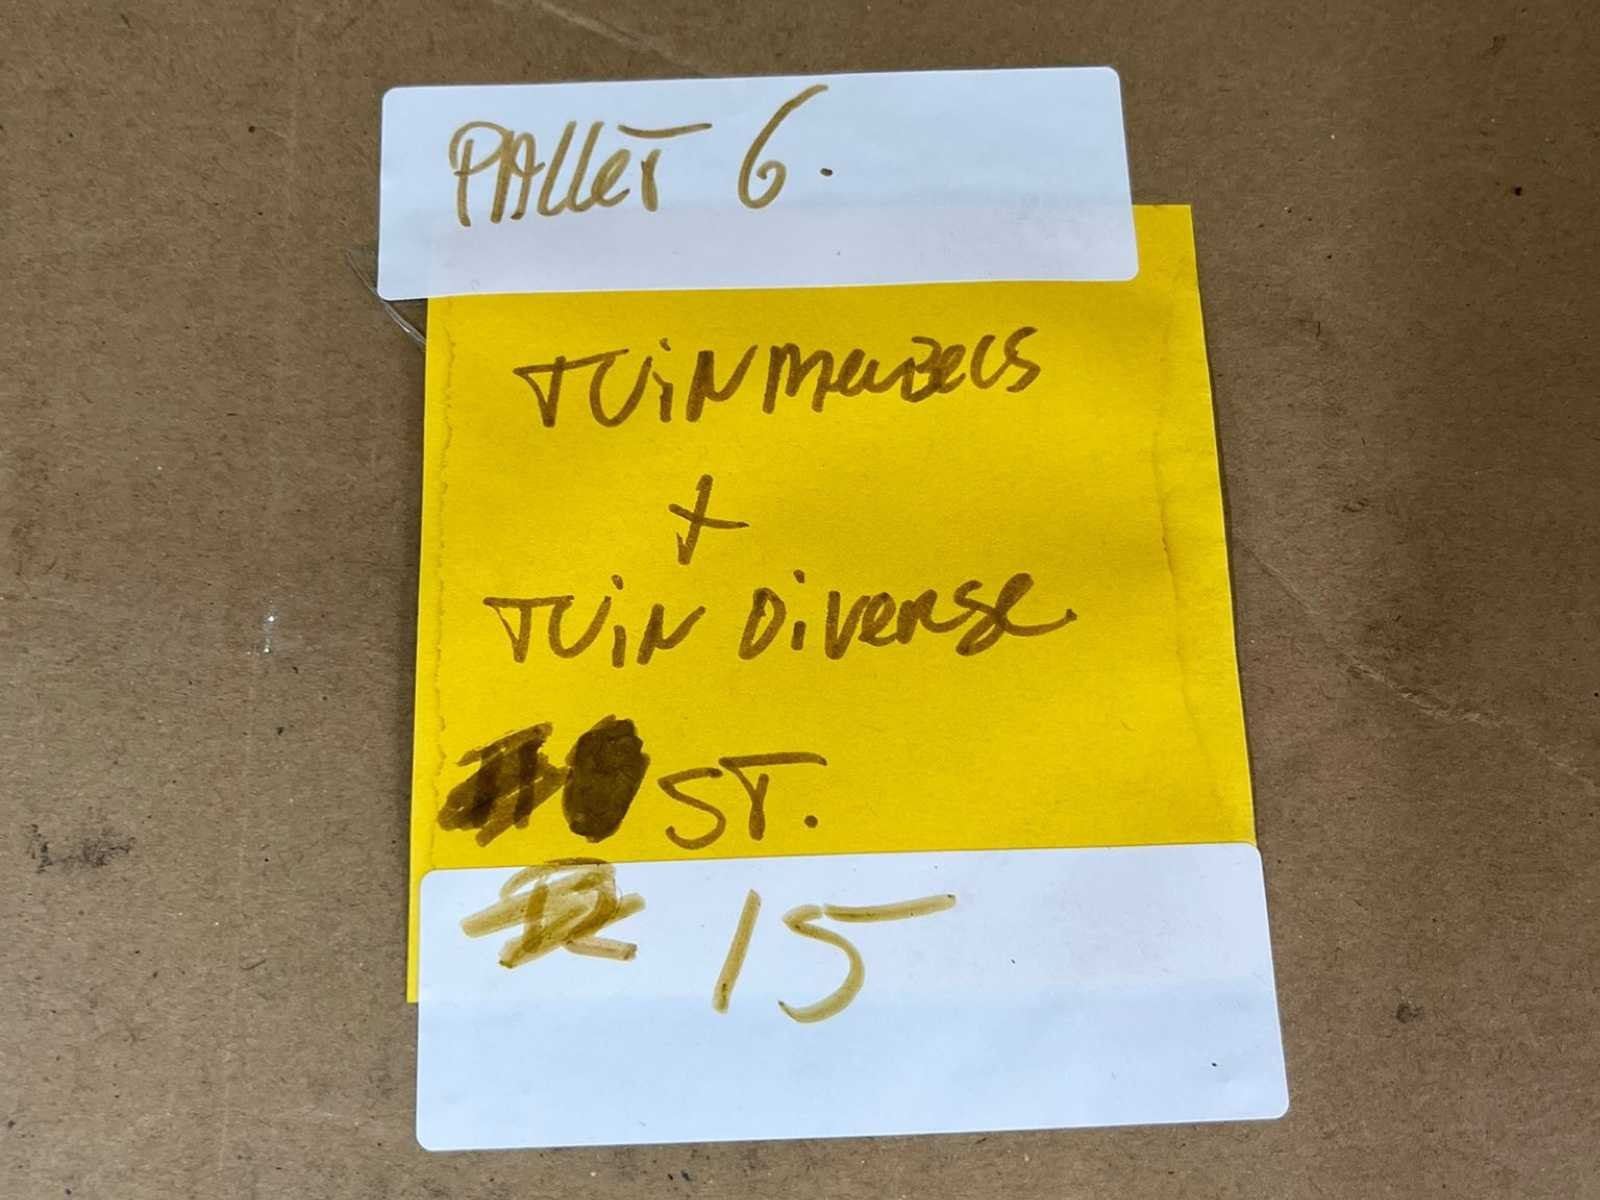 PALLET 6.
TUINMEUBELS
+
TUIN DIVERSE
ST.
15